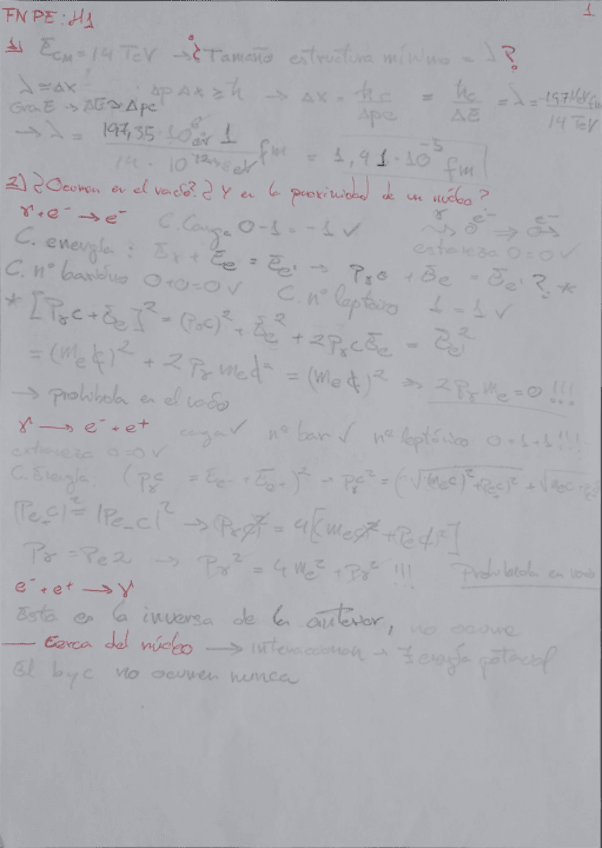 FNPE: H1
1
1) E_CM = 14 TeV → ¿Tamaño estructura mínimo = λ?
λ ≃ Δx Δp Δx ≥ ħ → Δx = ħc/Δpc = ħc/ΔE = λ = 197 MeV fm/14 TeV
Gran E → ΔE ≃ Δpc
→ λ = 197,35 · 10⁶ eV 1 / 14 · 10¹² eV fm = 1,41 · 10⁻⁵ fm
2) ¿Ocurren en el vacío? ¿Y en la proximidad de un núcleo?
γ + e⁻ → e⁻ C. Carga 0 - 1 = -1 ✓ γ e⁻ ⇒ e⁻
C. energía: E_γ + E_e = E_e' → P_γc + E_e = E_e'? * extrañeza 0 = 0 ✓
C. nº barióno 0 + 0 = 0 ✓ C. nº leptónico 1 = 1 ✓
* [P_γc + E_e]² = (P_γc)² + E_e² + 2P_γcE_e = E_e'²
= (m_e c)² + 2P_γ m_e c² = (m_e c)² ⇒ 2P_γ m_e = 0 !!!
→ prohibida en el vacío
γ → e⁻ + e⁺ carga ✓ nº bar ✓ nº leptónico 0 = 1 - 1 !!!
extrañeza 0 = 0 ✓
C. Energía (P_γc = E_e- + E_e+)² → P_γc² =
|P_e+c|² = |P_e-c|² → (P_γc)² = 4[(m_e c²)² + (P_e c)²]
P_γ = P_e 2 → P_γ² = 4m_e² + P_γ² !!! Prohibida en vacío
e⁻ + e⁺ → γ
Esta es la inversa de la anterior, no ocurre
— Cerca del núcleo → interaccionan → Energía potencial
El b y c no ocurren nunca